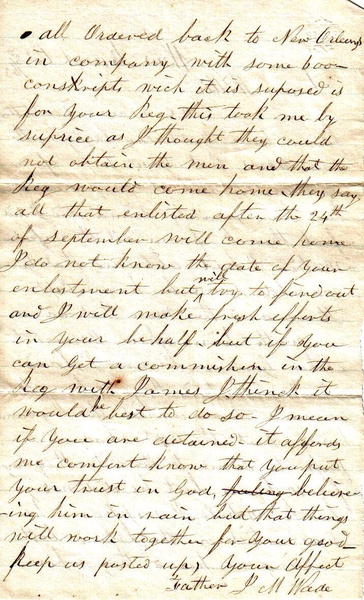 all Ordered back to New Orleans
in company with some 600
conskripts wich it is suposed is
for your Reg. this took me by
suprice as I thought they could
not obtain the men and that the
Reg would come home they say
all that enlisted after the 24th
of september will come home
I do not know the date of your
enlostment but will try to find out
and I will make fresh efforts
in your behalf. but if you
can get a commishin in the
Reg with James I think it
would be best to do so - I mean
if you are detained - it affords
me comfort know that you put
your trust in God, believe
-ing him in vain but that things
will work together for your good
keep us posted up, your affect
Father J M Wade